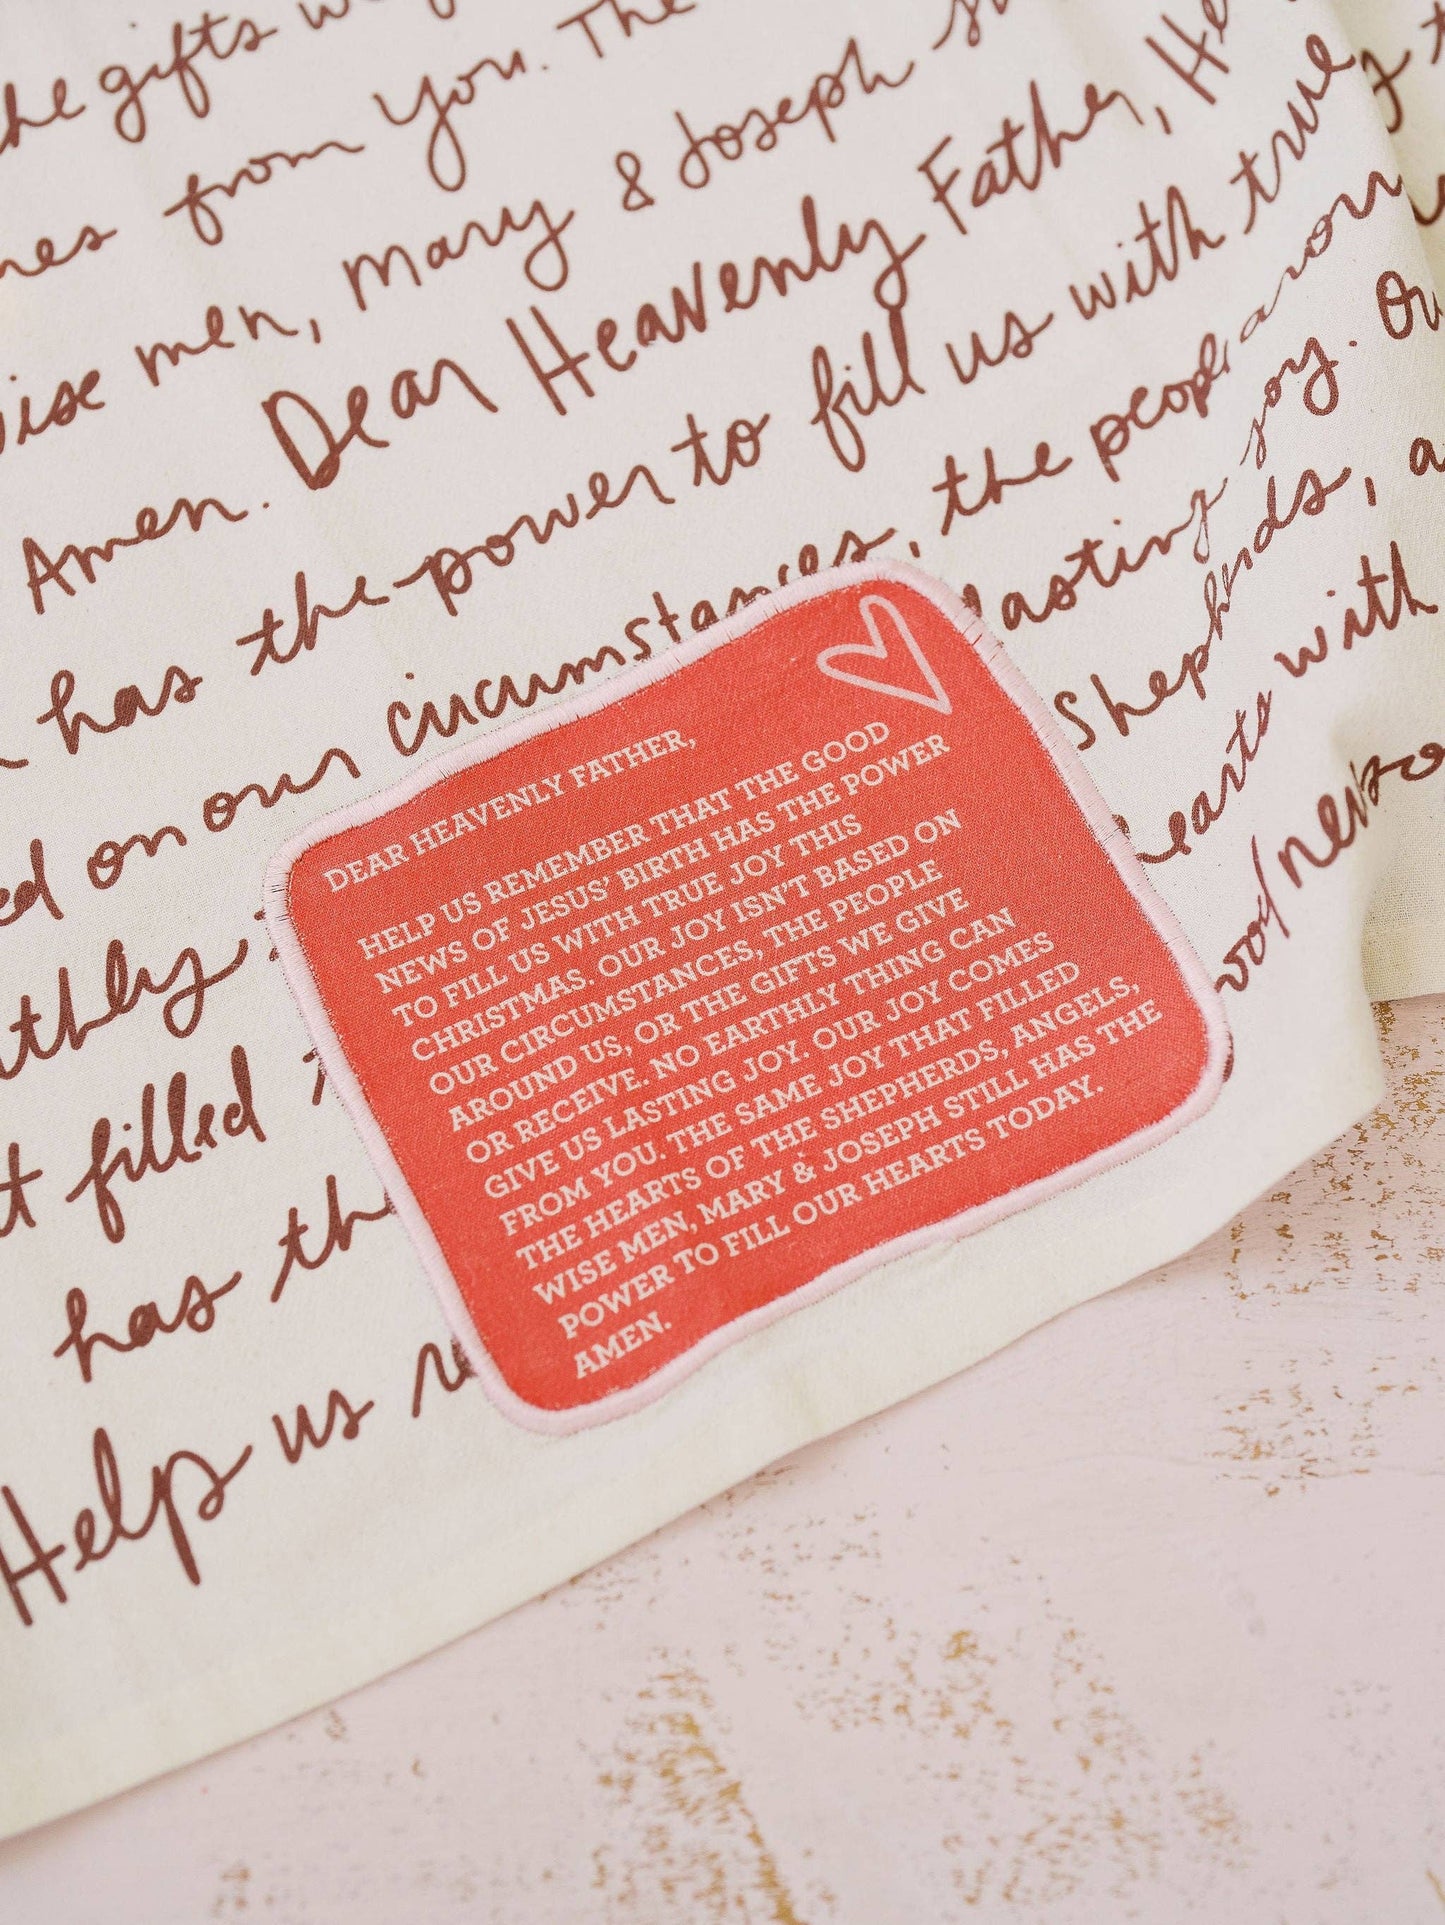 he gifts we
from You. The
wise men, Mary & Joseph
Amen. Dear Heavenly Father, He
has the power to fill us with true
ed on our circumstances, the people aroun
thly lasting joy. Ou
t filled Shepherds, a
has the hearts with
Help us good news o
DEAR HEAVENLY FATHER,
HELP US REMEMBER THAT THE GOOD
NEWS OF JESUS' BIRTH HAS THE POWER
TO FILL US WITH TRUE JOY THIS
CHRISTMAS. OUR JOY ISN'T BASED ON
OUR CIRCUMSTANCES, THE PEOPLE
AROUND US, OR THE GIFTS WE GIVE
OR RECEIVE. NO EARTHLY THING CAN
GIVE US LASTING JOY. OUR JOY COMES
FROM YOU. THE SAME JOY THAT FILLED
THE HEARTS OF THE SHEPHERDS, ANGELS,
WISE MEN, MARY & JOSEPH STILL HAS THE
POWER TO FILL OUR HEARTS TODAY.
AMEN.